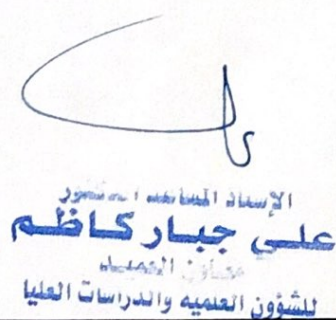 الإستاذ المساعد الدكتور
علي جبار كاظم
معاون العميد
للشؤون العلميه والدراسات العليا